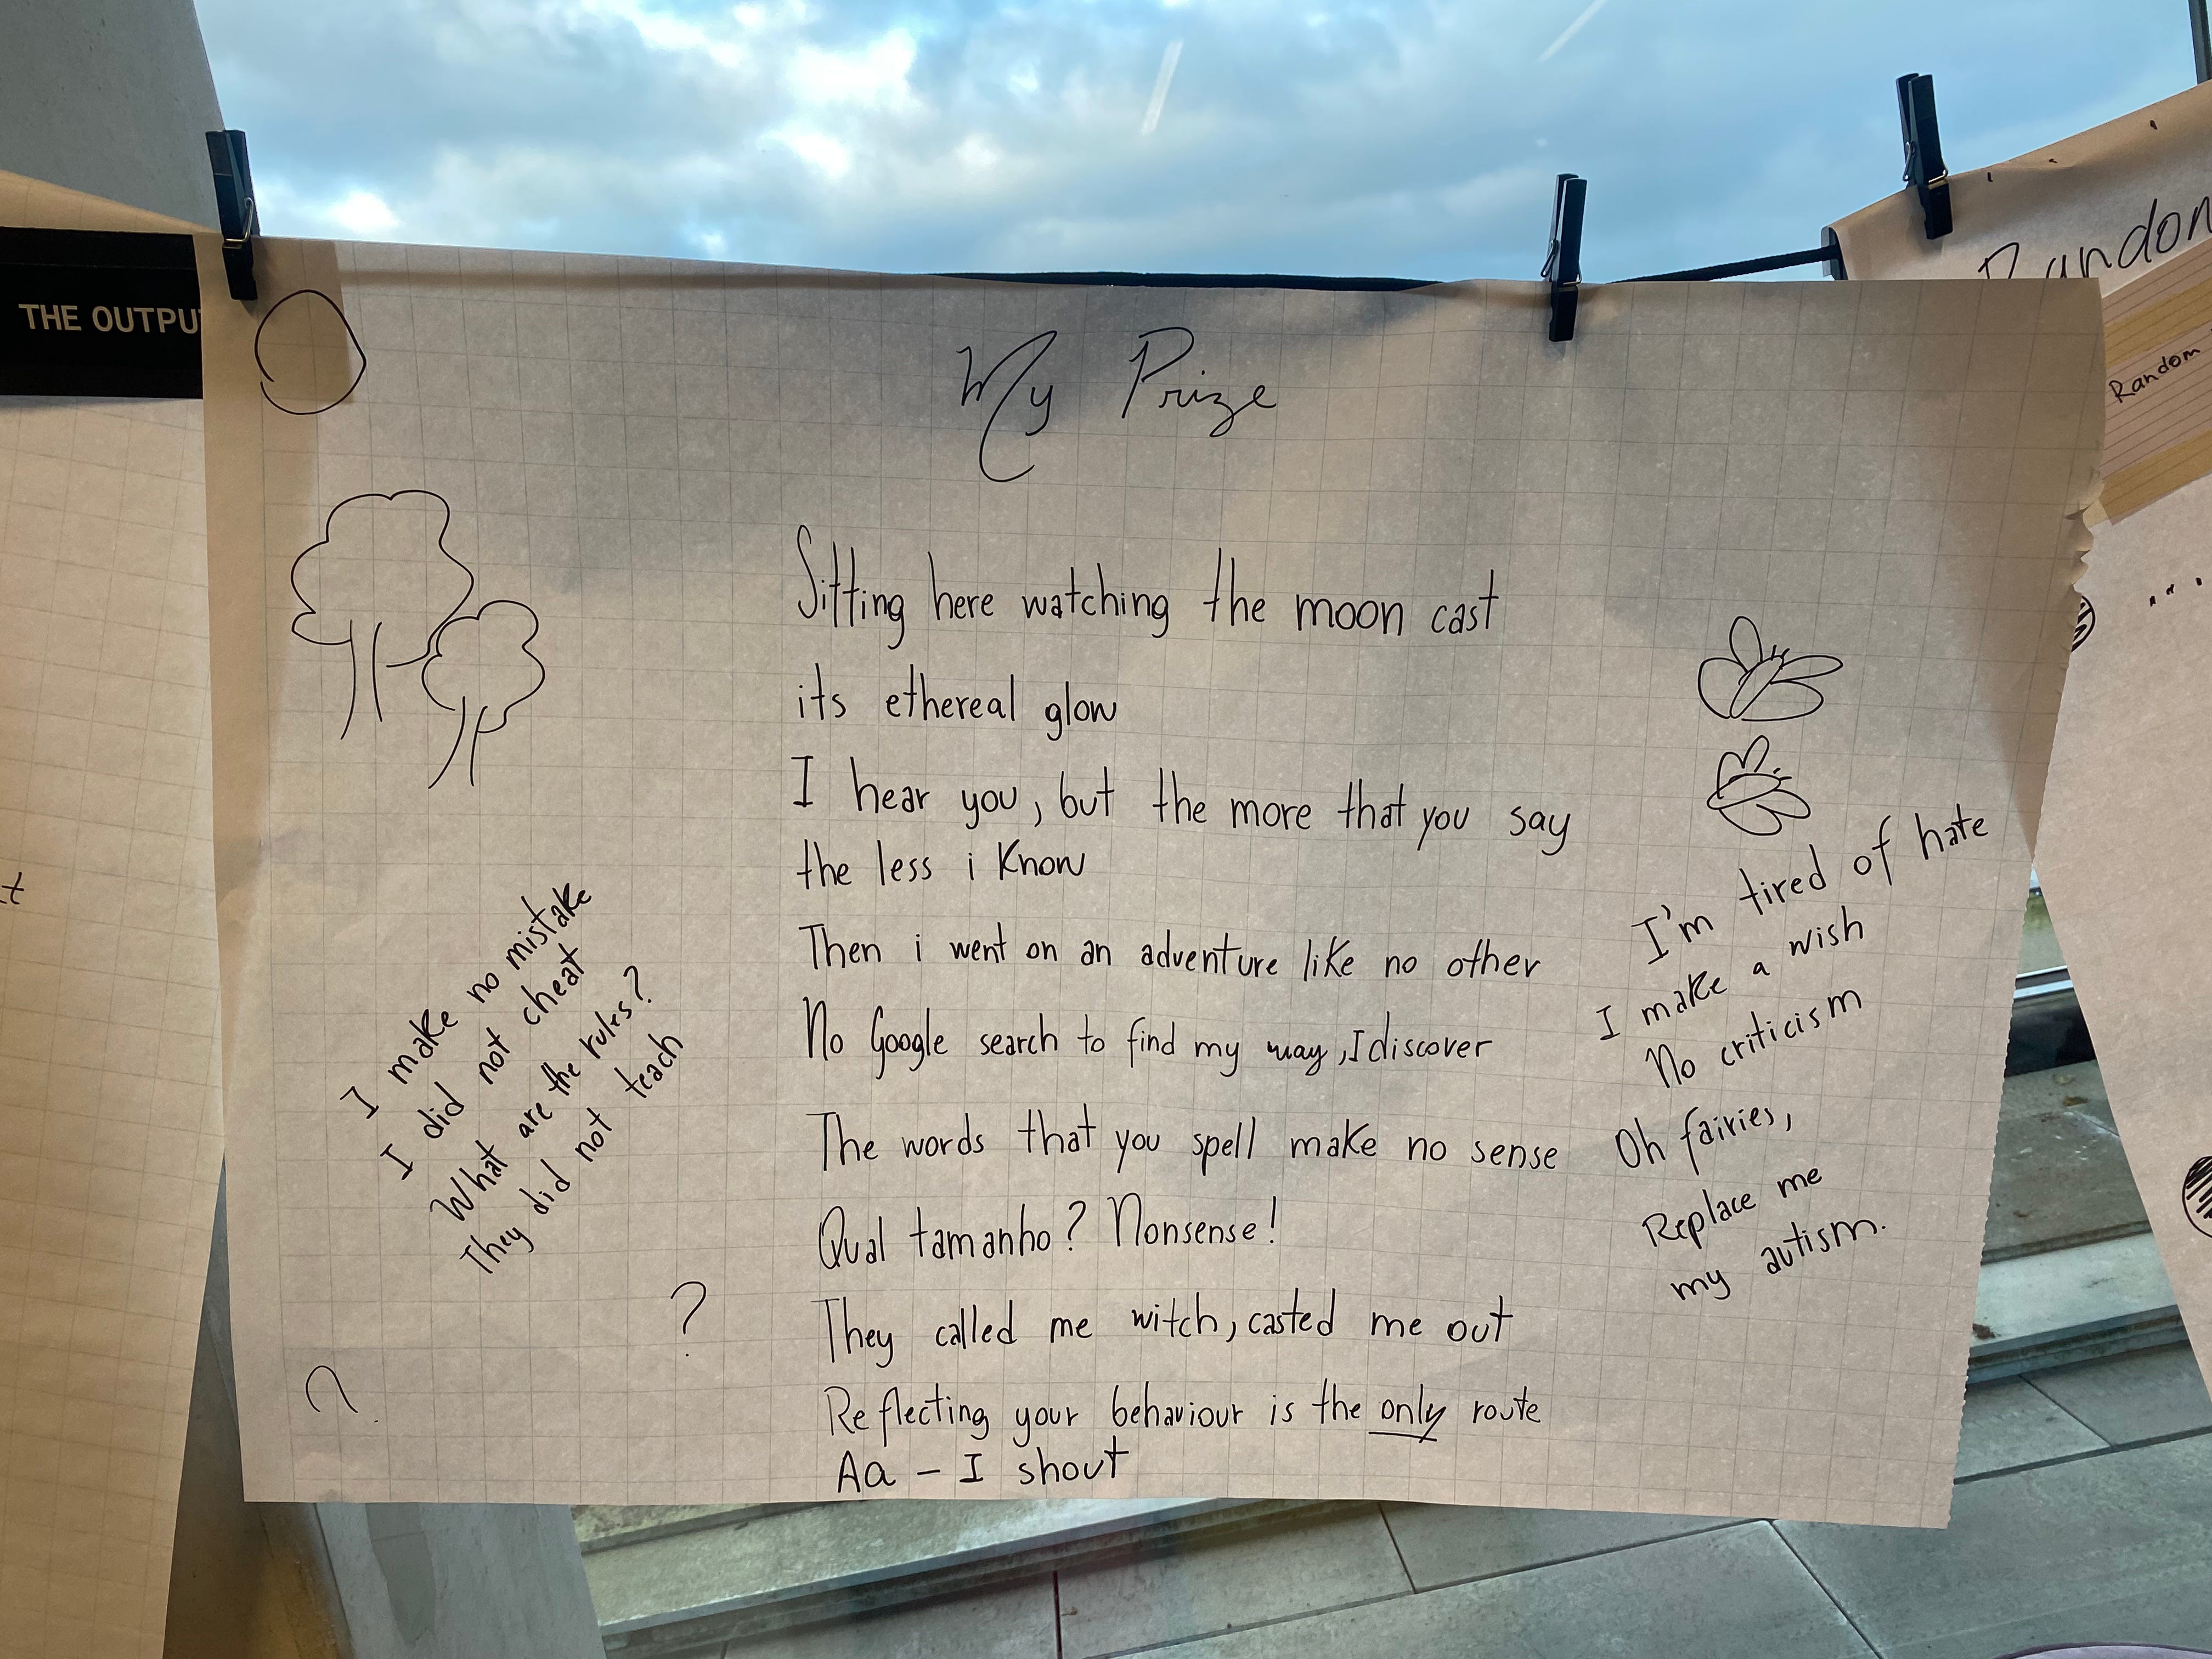 THE OUTPU
Random
My Prize
Random
Sitting here watching the moon cast
its ethereal glow
I hear you, but the more that you say
the less i know
Then i went on an adventure like no other
No Google search to find my way, I discover
The words that you spell make no sense
Qual tamanho? Nonsense!
They called me witch, casted me out
Reflecting your behaviour is the only route
Aa - I shout
I make no mistake
I did not cheat
What are the rules?
They did not teach
?
?
I'm tired of hate
I make a wish
No criticism
Oh fairies,
Replace me
my autism.